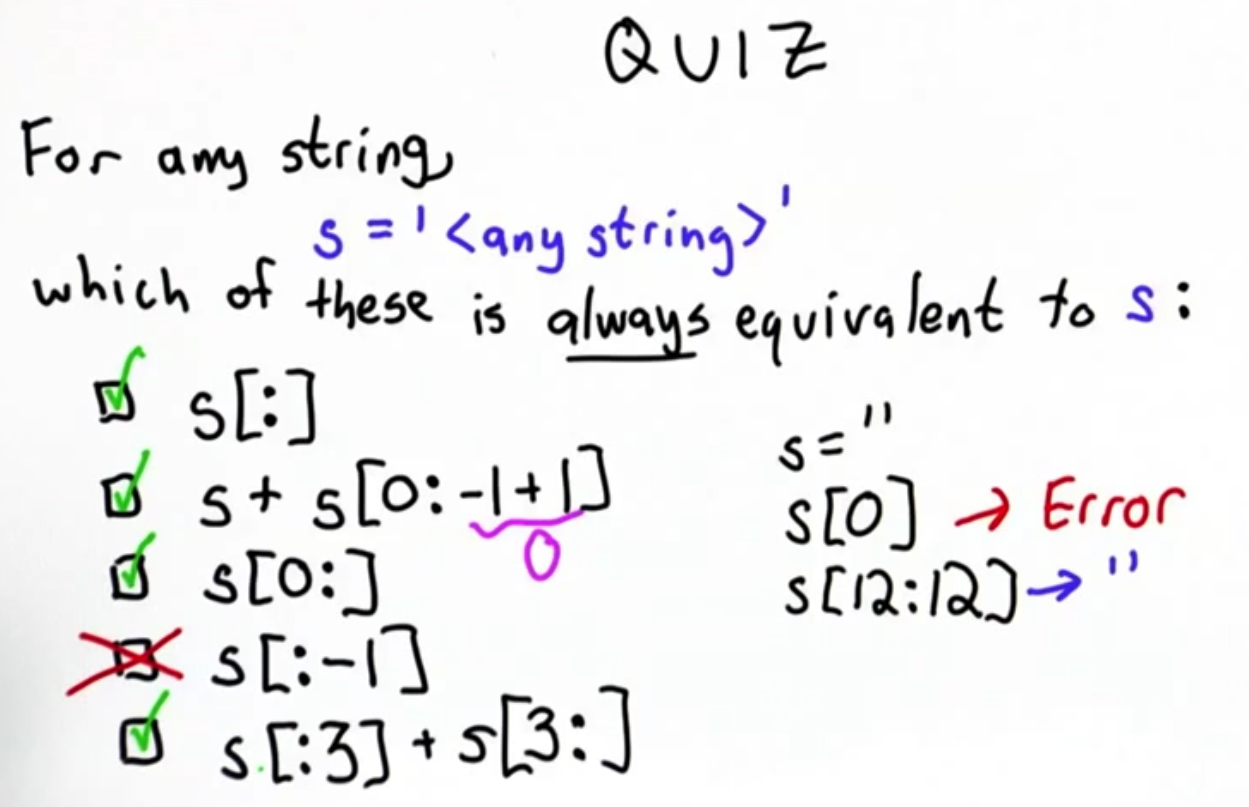 QUIZ
For any string,
s = '<any string>'
which of these is always equivalent to s:
s[:]
s + s[0: -1+1]
0
s[0:]
s[:-1]
s.[:3] + s[3:]
s = ''
s[0] → Error
s[12:12] → ''